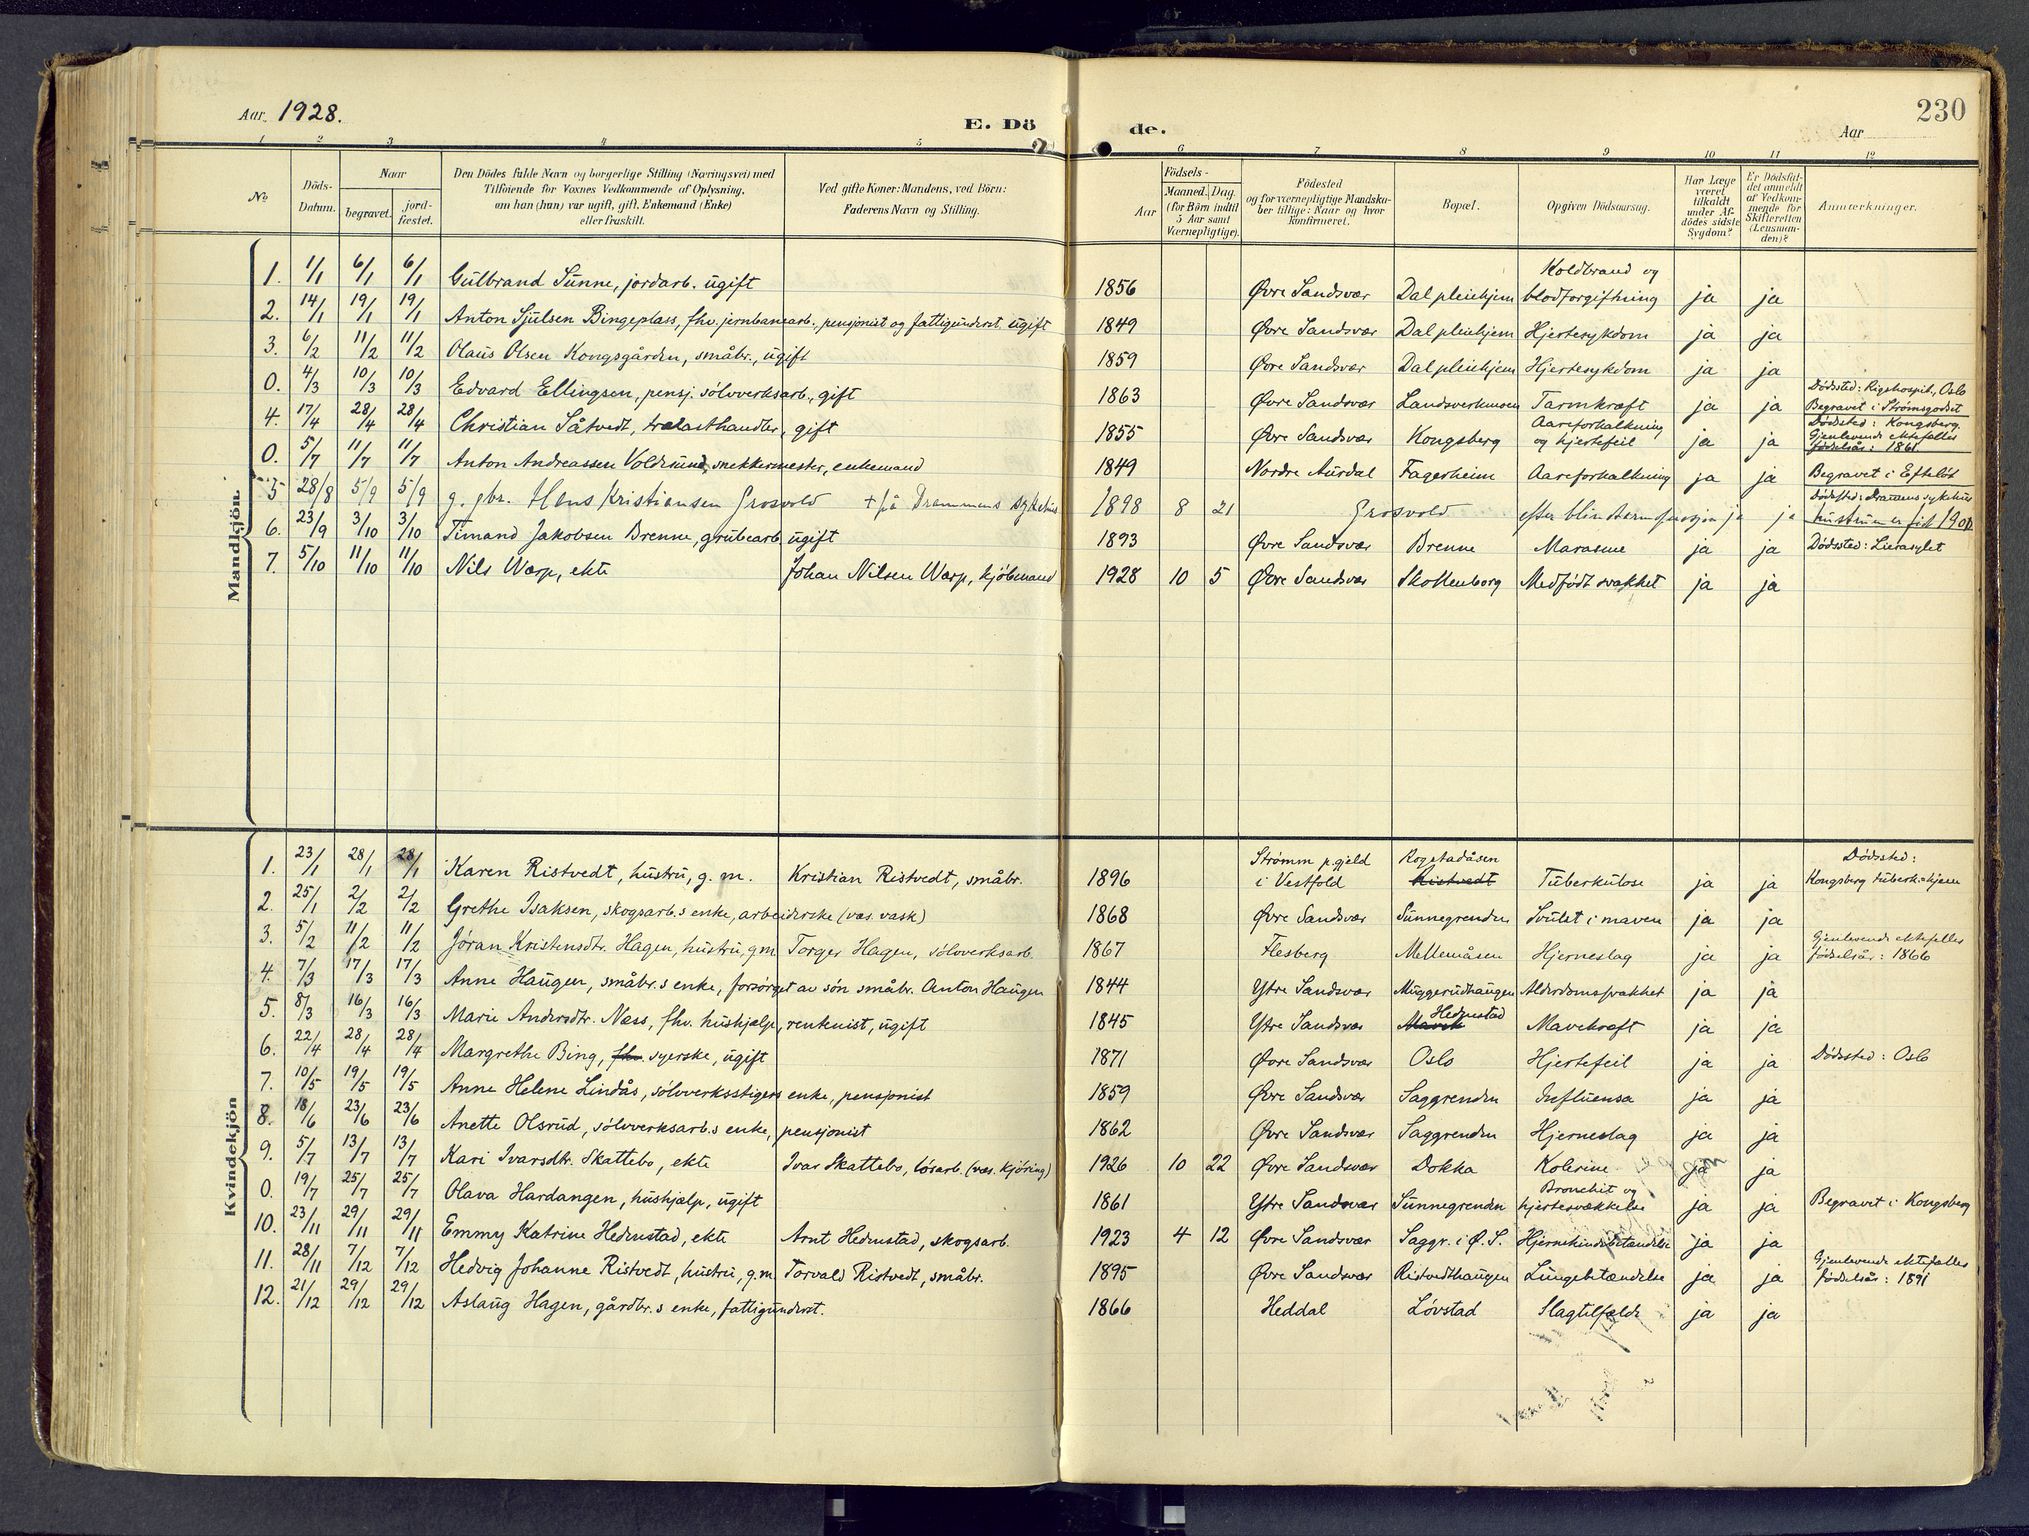 Aar 1928. E. Dö de. Aar 230
1 2 3 4 5 6 7 8 9 10 11 12
No Döds-Datum. Naar begravet. jord-fæstet. Den Dödes fulde Navn og borgerlige Stilling (Næringsvei) med Tilföiende for Voxnes Vedkommende af Oplysning, om han (hun) var ugift, gift, Enkemand (Enke) eller fraskilt. Ved gifte Koner: Mandens, ved Börn: Faderens Navn og Stilling. Aar Födsels- Maaned. Dag. (for Börn indtil 5 Aar samt Værnepligtige). Födested og for værnepligtige Mandskaber tillige: Naar og hvor konfirmeret. Bopæl. Opgiven Dödsaarsag. Har Læge været tilkaldt under Afdödes sidste Sygdom? Er Dödsfaldet anmeldt af Vedkommende for Skifteretten (Lensmanden)? Anmærkninger.
Mandkjön.
1. 1/1 6/1 6/1 Gulbrand Sunne, jordarb. ugift 1856 Øvre Sandsvær Dal pleiehjem Koldbrand og blodforgiftning ja ja
2. 14/1 19/1 19/1 Anton Sjulsen Bingeplass, fhv. jernbanearb., pensjonist og fattigunderst. ugift 1849 Øvre Sandsvær Dal pleiehjem Hjertesykdom ja ja
3. 6/2 11/2 11/2 Olaus Olsen Kongsgården, småbr., ugift 1859 Øvre Sandsvær Dal pleiehjem Hjertesykdom ja ja
0. 4/3 10/3 10/3 Edvard Ellingsen, pensj. sølvverksarb., gift 1863 Øvre Sandsvær Landsverkmoen Tarmkræft ja ja Dødssted: Rigshospit., Oslo Begravet i Strømsgodset
4. 17/4 28/4 28/4 Christian Såtvedt, trelasthandler, gift 1855 Øvre Sandsvær Kongsberg Aareforkalkning og hjertefeil ja ja Dødssted: Kongsberg. Gjenlevende ektefælles fødselsår: 1861
0. 5/7 11/7 11/7 Anton Andreassen Voldesund, snekkermester, enkemand 1849 Nordre Aurdal Fagerheim Aareforkalkning ja ja Begravet i Efteløt
5 28/8 5/9 5/9 g. gbr. Hans Kristiansen Grosvold + på Drammens sykehus 1898 8 21 Grosvold efter blindtarmoperasjon ja ja Dødssted: Dramens sykehus hustruen er født 1901
6. 23/9 3/10 3/10 Timand Jakobsen Brenne, grubearb. ugift 1893 Øvre Sandsvær Brenne Marasme ja ja Dødssted: Lierasylet
7. 5/10 11/10 11/10 Nils Warp, ekte Johan Nilsen Warp, kjøbmand 1928 10 5 Øvre Sandsvær Skollenborg Medfødt svakhet ja ja
Kvindekjön
1. 23/1 28/1 28/1 Karen Ristvedt, hustru, g. m. Kristian Ristvedt, småbr. 1896 Strømm p.gjeld i Vestfold Rogstadåsen Ristvedt Tuberkulose ja ja Dødssted: Kongsberg tuberk.hjem
2. 25/1 2/2 2/2 Grethe Isaksen, skogsarb.s enke, arbeiderske (væs. vask) 1868 Øvre Sandsvær Sunnegrenden Svulst i maven ja ja
3. 5/2 11/2 11/2 Jøran Kristensdtr. Hagen, hustru, g.m. Torger Hagen, sølvverksarb. 1867 Flesberg Mellemåsen Hjerneslag ja ja Gjenlevende ektefælles fødselsår: 1866
4. 7/3 17/3 17/3 Anne Haugen, småbr.s enke, forsørget av søn småbr. Anton Haugen 1844 Ytre Sandsvær Muggerudhaugen Alderdomssvakhet ja ja
5. 8/3 16/3 16/3 Marie Andersdtr. Næss, fhv. hushjælp, rentenist, ugift 1845 Ytre Sandsvær Hedenstad Mavekræft ja ja
6. 22/4 28/4 28/4 Margrethe Bing, fhv. syerske, ugift 1871 Øvre Sandsvær Oslo Hjertefeil ja ja Dødssted: Oslo
7. 10/5 19/5 19/5 Anne Helene Lindås, sølvverksstigers enke, pensjonist 1859 Øvre Sandsvær Saggrenden Influensa ja ja
8. 18/6 23/6 23/6 Anette Olsrud, sølvverksarb.s enke, pensjonist 1862 Øvre Sandsvær Saggrenden Hjerneslag ja ja
9. 5/7 13/7 13/7 Kari Ivarsdtr. Skattebo, ekte Ivar Skattebo, løsarb. (væs. kjøring) 1926 10 22 Øvre Sandsvær Dokka Kolerine ja ja
0. 19/7 25/7 25/7 Olava Hardangen, hushjælp, ugift 1861 Ytre Sandsvær Sunnegrenden Bronchit og hjertesvækkelse ja ja Begravet i Kongsberg
10. 23/11 29/11 29/11 Emmy Katrine Hedenstad, ekte Arnt Hedenstad, skogsarb. 1923 4 12 Øvre Sandsvær Saggr. i Ø. S. Hjernehindebetændelse ja ja
11. 28/11 7/12 7/12 Hedvig Johanne Ristvedt, hustru, g.m. Torvald Ristvedt, småbr. 1895 Øvre Sandsvær Ristvedthaugen Lungebetændelse ja ja Gjenlevende ektefælles fødselsår: 1891
12. 21/12 29/12 29/12 Aslaug Hagen, gårdbr.s enke, fattigunderst. 1866 Heddal Løvstad Slagtilfælde ja ja